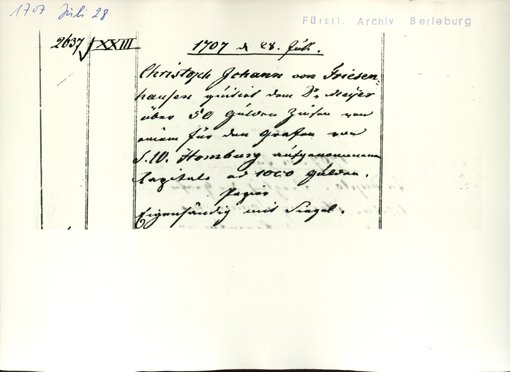 1707 Juli 28
Fürstl. Archiv Berleburg
2637 XXIII
1707 d 28. Juli.
Christoph Johann von Friesen-
hausen quitirt dem Dr Meijer
über 50 Gulden Zinsen von
einem für den Grafen von
S. W. Homburg aufgenommenen
Capitale ad 1000 Gulden.
Papier
Eigenhändig mit Siegel.